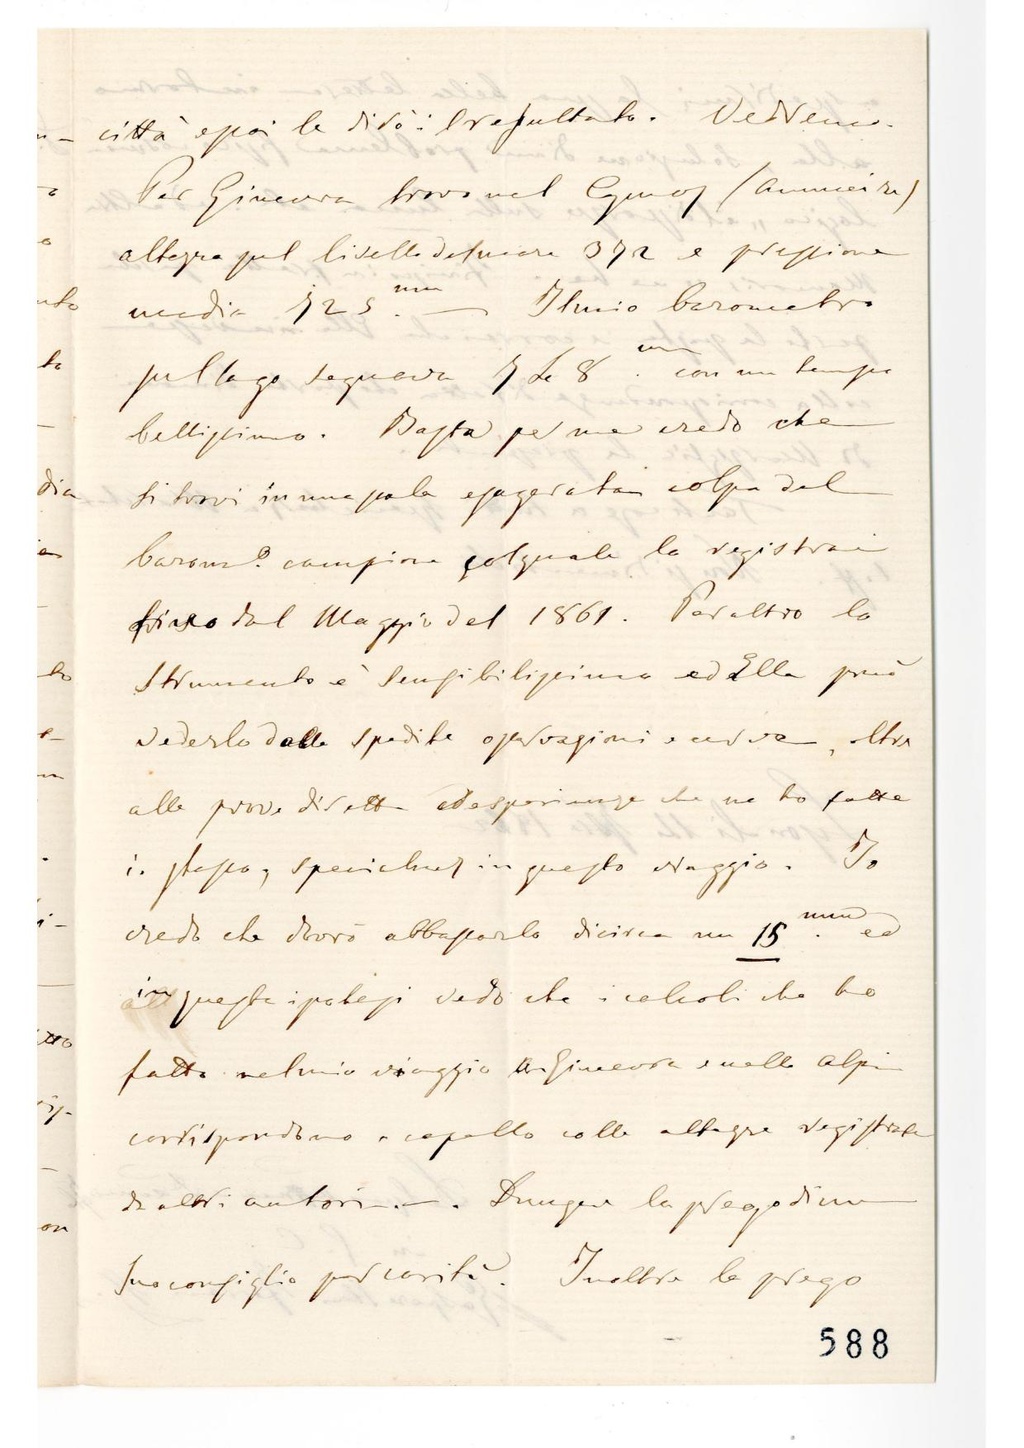 città e poi le dirò il resultato. Vedremo.
Per Ginevra trovo nel (Annuaire)
altezza sul livello del mare 372 e pressione
media 725 mm. — Il mio barometro
sul lago segnava con un tempo
bellissimo. Basta per me credo che
si trovi in una scala esagerata in colpa del
barom.o campione col quale lo registrai
fino dal Maggio del 1861. Per altro lo
strumento è sensibilissimo ed Ella può
vederlo dalle spedite osservazioni e curva, oltre
alle prove dirette ed esperienze che ne ho fatte
io stesso, in questo viaggio. Io
credo che dovrò abbassarlo di circa un 15 mm. ed
in questa ipotesi vedo che i calcoli che ho
fatto nel mio viaggio a Ginevra e nelle alpi
corrispondono a capello colle altezze registrate
da altri autori. — . Dunque la prego di un
suo consiglio per carità. Inoltre la prego
588